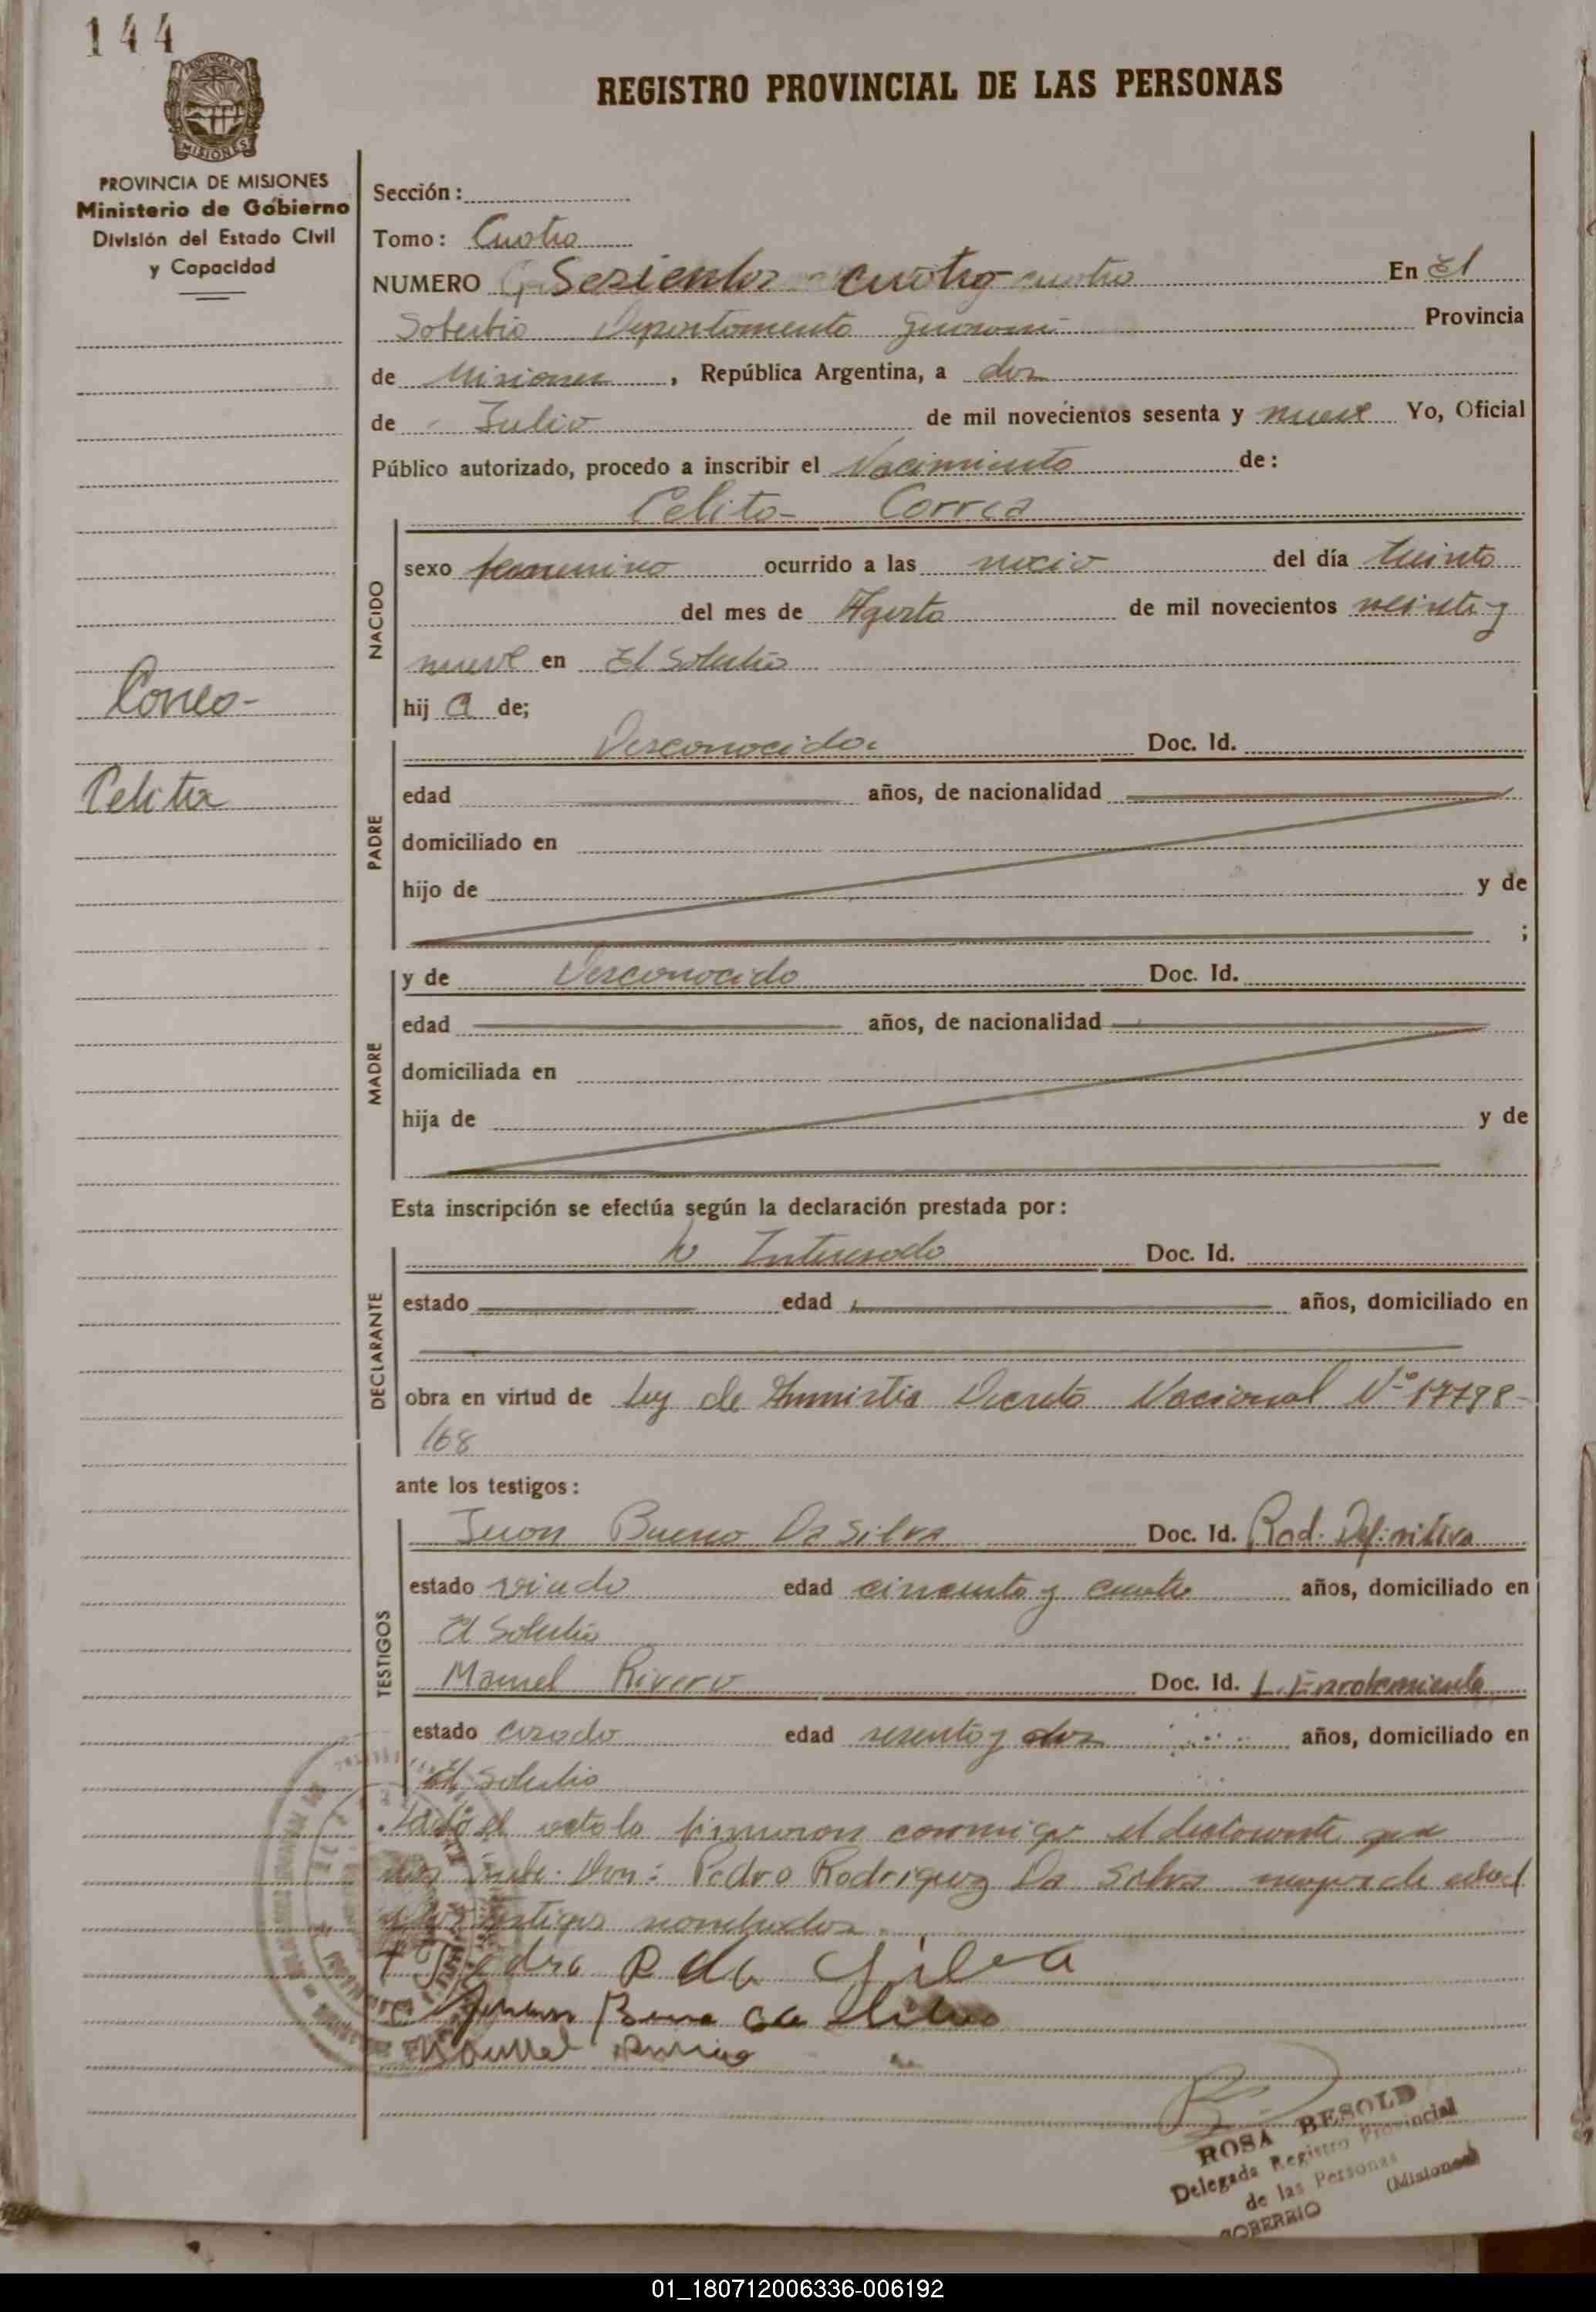 144
PROVINCIA DE MISIONES
REGISTRO PROVINCIAL DE LAS PERSONAS
PROVINCIA DE MISIONES
Ministerio de Gobierno
División del Estado Civil
y Capacidad
Sección:
Tomo: Cuatro
NUMERO Sesientos cuatro cuatro En El
Soberbio Departamento Guarani Provincia
de Misiones, República Argentina, a dos
de Julio de mil novecientos sesenta y nueve Yo, Oficial
Público autorizado, procedo a inscribir el Nacimiento de:
Celita Correa
NACIDO
sexo femenino ocurrido a las nacio del día treinta
del mes de Agosto de mil novecientos veinte y
nueve en El Soberbio
hij a de;
Correa
Celita
PADRE
Desconocido Doc. Id.
edad años, de nacionalidad
domiciliado en
hijo de y de
;
MADRE
y de Desconocido Doc. Id.
edad años, de nacionalidad
domiciliada en
hija de y de
Esta inscripción se efectúa según la declaración prestada por:
DECLARANTE
la Interesada Doc. Id.
estado edad años, domiciliado en
obra en virtud de Ley de Amnistia Decreto Nacional Nº 17798
/68
ante los testigos:
TESTIGOS
Juan Bueno Da Silva Doc. Id. Rad. Definitiva
estado viudo edad cincuenta y cuatro años, domiciliado en
El Soberbio
Manuel Rivero Doc. Id. L. Enrolamiento
estado casado edad sesenta y dos años, domiciliado en
El Soberbio
el acta la firmaron conmigo el declarante por
Don: Pedro Rodriguez Da Silva mayor de edad
testigos nombrados.
Pedro R da Silva
Juan Bueno da Silva
Manuel Rivero
ROSA BESOLD
Delegada Registro Provincial
de las Personas
SOBERBIO (Misiones)
01_180712006336-006192